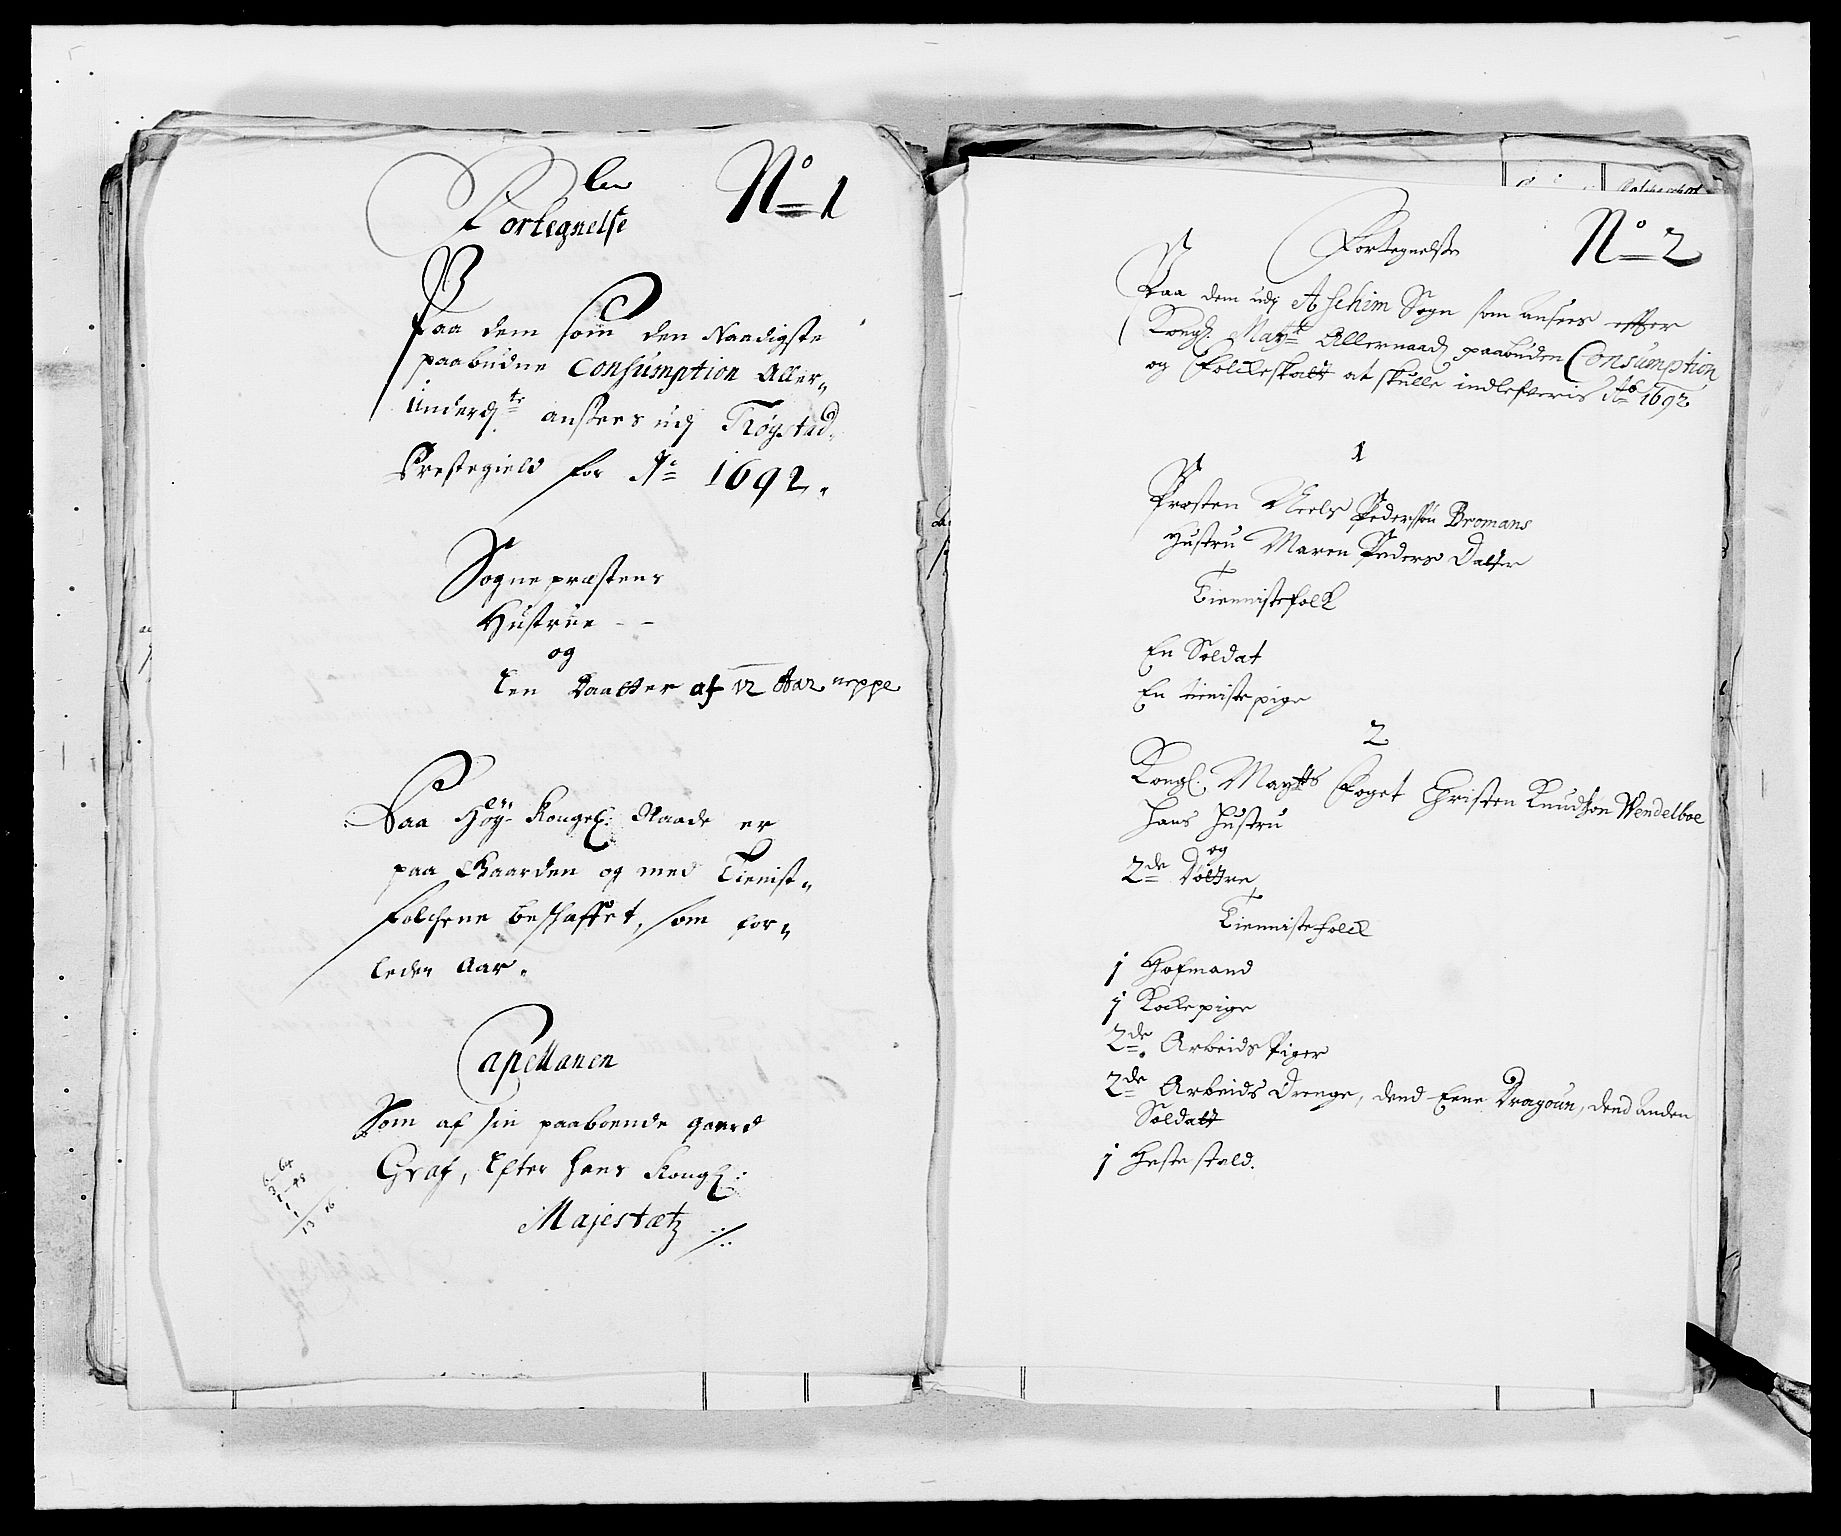 Een
No 1
Fortegnelse
Paa dem som den Naadigste
paabudne Consumption Aller-
underd.te ansees udj Trøgstad
Prestegield for Ao 1692.
Sognepræstens
Hustrue - -
og
Een Daatter af 12 Aar neppe
Paa Høy- Kongel: Naade er
paa Gaarden og med Tienist-
folchene beschaffet, som for-
leden Aar.
Capellanen
Som af sin paaboende gaard
Graf, Efter hans Kongl:
Majestætz
No 2
Fortegnelse
Paa dem udj Aschim Sogn som ansees effter
Kongl. Mayts Allernaad. paabuden Consumption
og Folckeskatt at skulle indlefveris Ao 1692
1
Præsten Neels Pedersøn Bromans
Hustru Maren Peders Datter
Tiennistefolk
En Soldat
En tienistepige
2
Kongl. Maytts Foget Christen Knudsøn Wendelboe
Hans Hustru
og
2de Døttre
Tiennistefolck
1 Hofmand
1 Kockepige
2de Arbeids Piger
2de Arbeids Drenge, dend Eene Dragoun, dend anden
Soldatt
1 Heste stald.